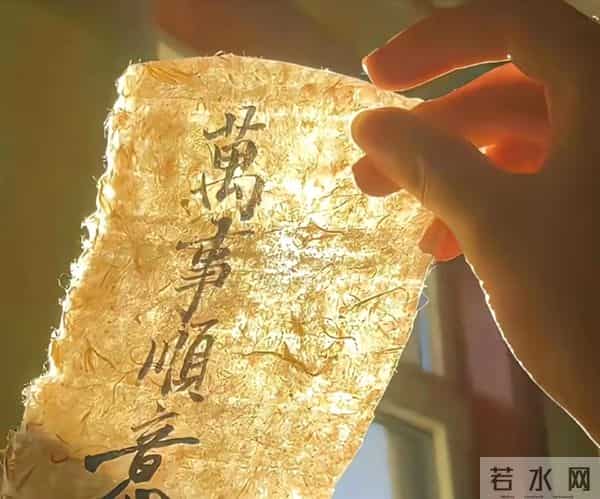 萬事順意
若水网